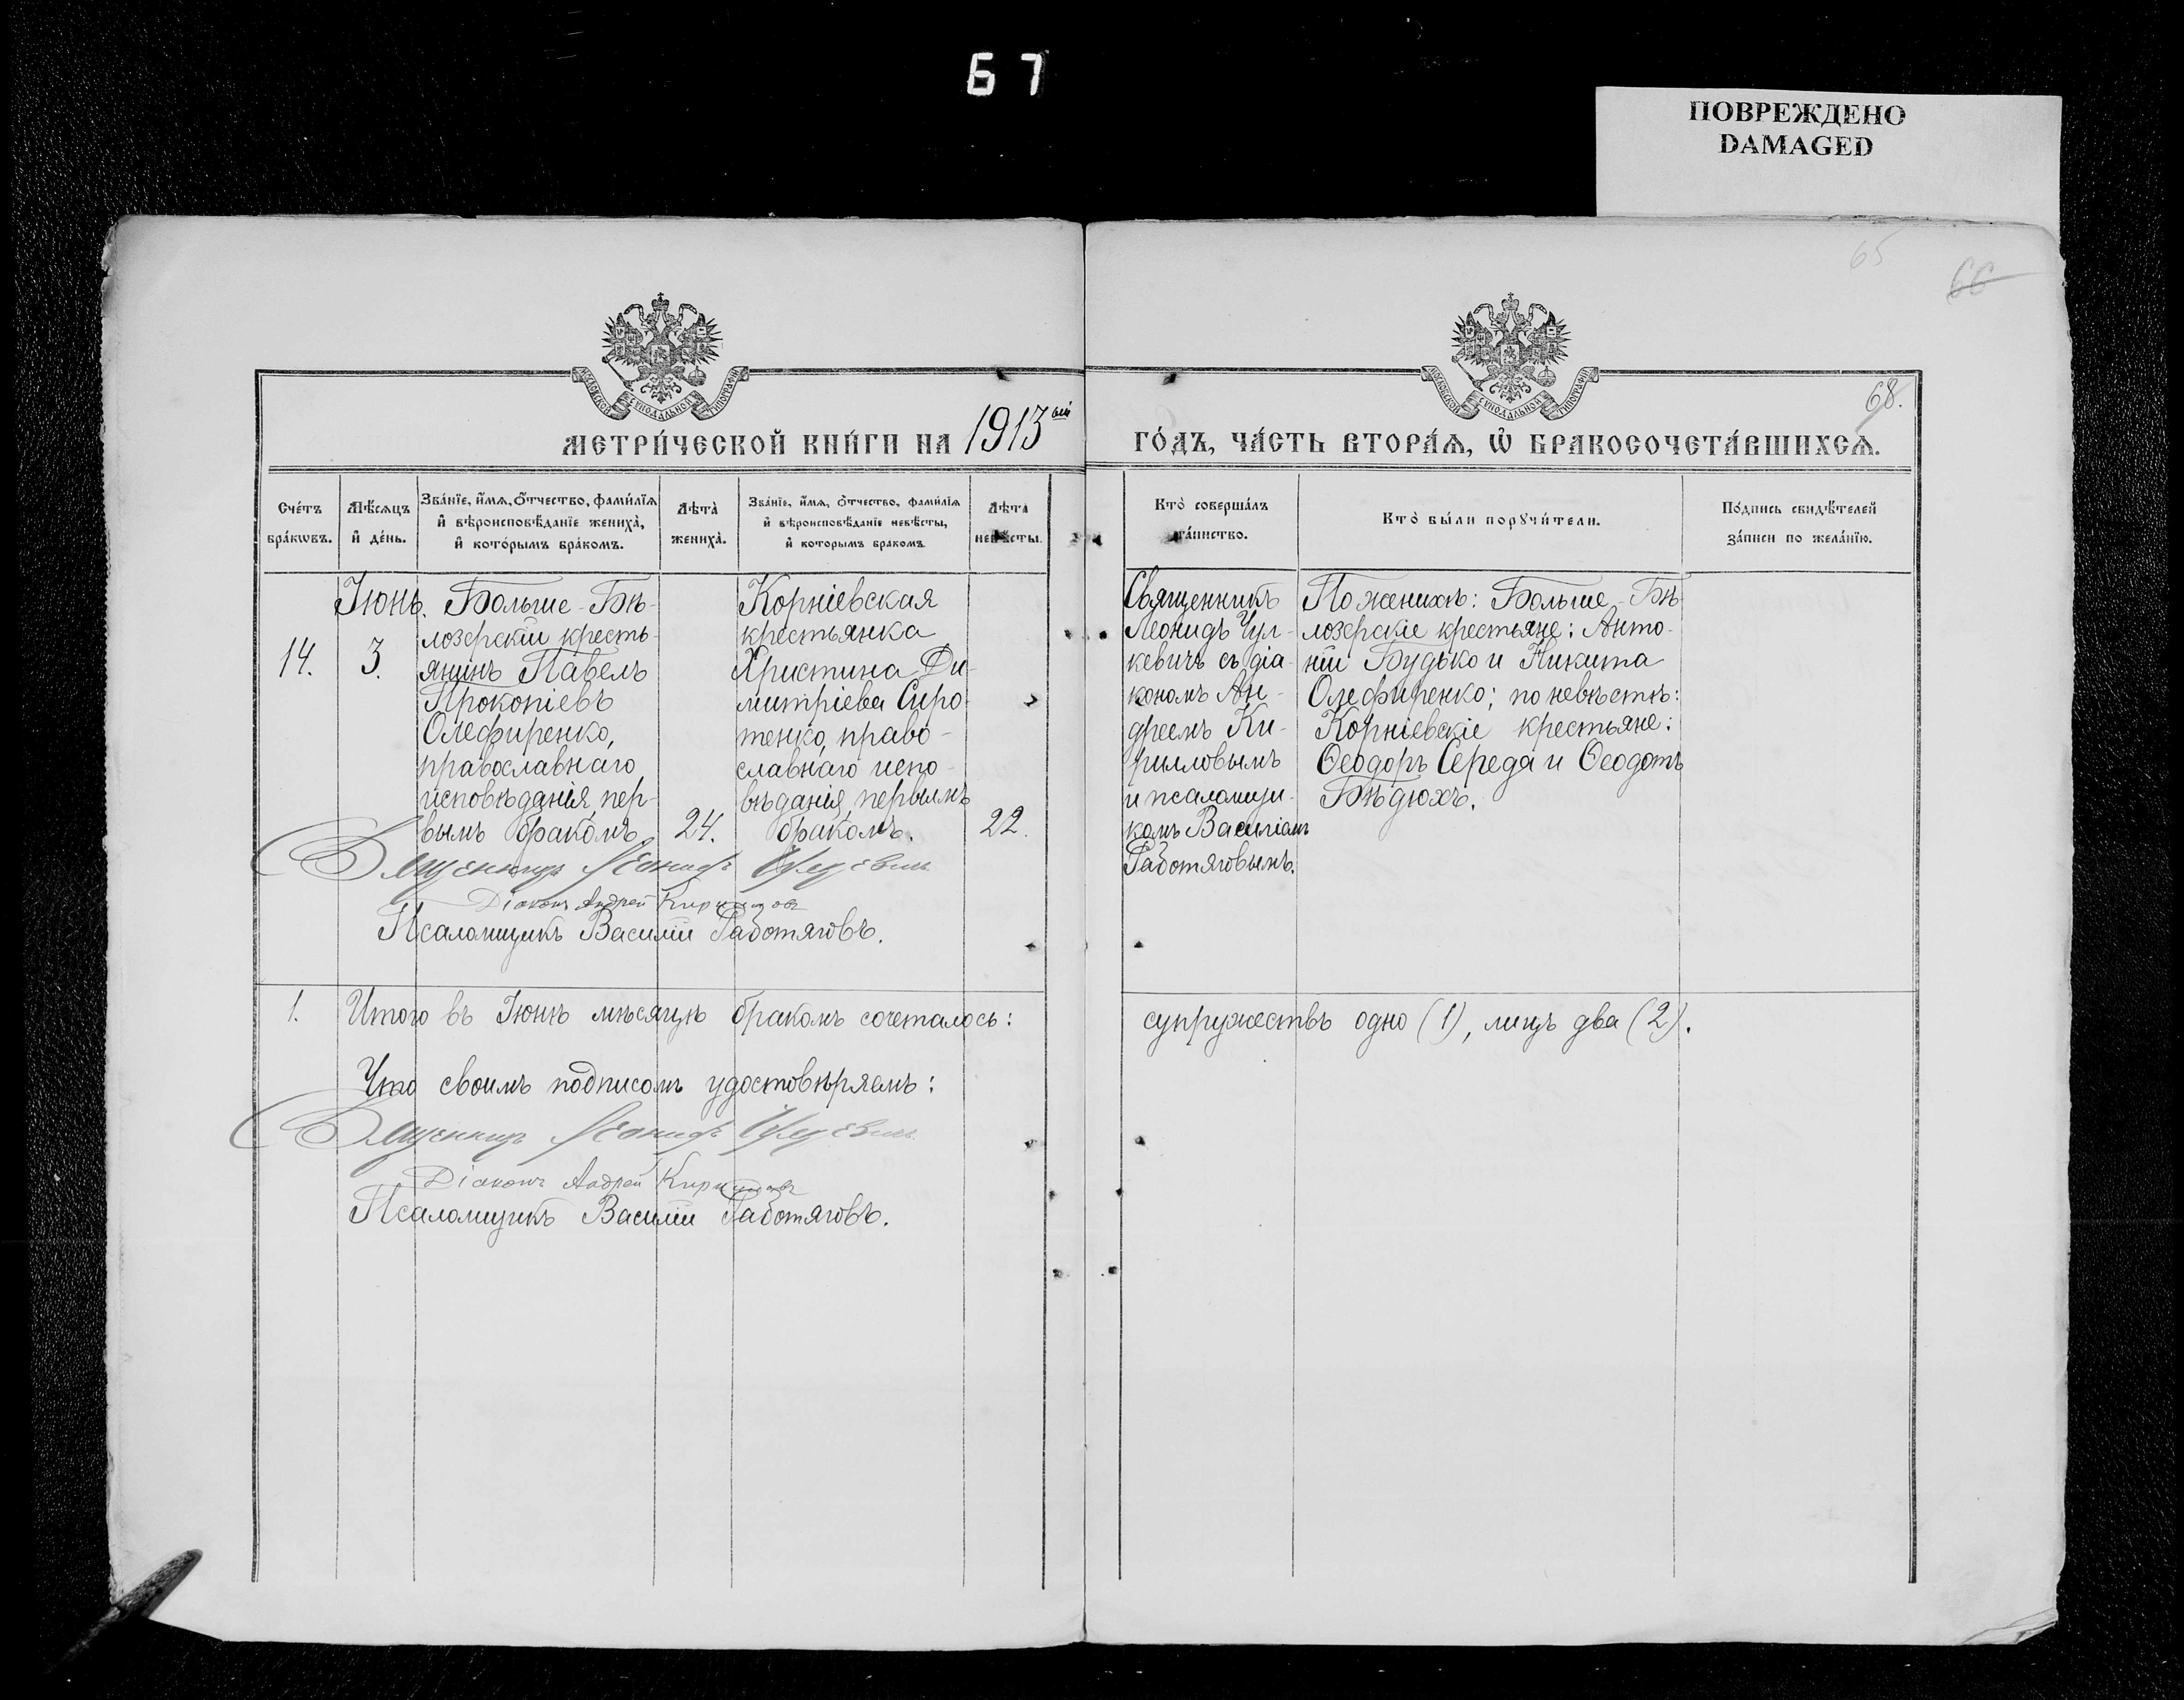 67
ПОВРЕЖДЕНО
DAMAGED
65
66
68.
МОСКОВСКОЙ СѴНОДАЛЬНОЙ ТИПОГРАФІИ
МОСКОВСКОЙ СѴНОДАЛЬНОЙ ТИПОГРАФІИ
МЕТРИ́ЧЕСКОЙ КНИ́ГИ НА 1913 ый
ГО́ДЪ, ЧА́СТЬ ВТОРА́Ѧ, Ѡ҆ БРАКОСОЧЕТА́ВШИХСѦ.
Сче́тъ
бра́кѡвъ.
Мѣ́сѧцъ
и҆ де́нь.
Зва́нїе, и҆́мѧ, ѻ҆́тчество, фами́лїѧ
и҆ вѣроисповѣ́данїе жениха̀,
и҆ кото́рымъ бра́комъ.
Лѣта̀
жениха̀.
Зва́нїе, и҆́мѧ, ѻ҆́тчество, фами́лїѧ
и҆ вѣроисповѣ́данїе невѣ́сты,
и҆ которымъ бракомъ
Лѣта
невѣсты.
Кто̀ соверша́лъ
та́инство.
Кто̀ бы́ли порꙋчи́тели.
По́дпись свидѣ́телей
за́писи по жела́нїю.
14.
Іюнь.
3.
Больше-Бѣ-
лозерскій кресть-
янинъ Павелъ
Прокопіевъ
Олефиренко,
православнаго
исповѣданія, пер-
вымъ бракомъ
24.
Корніевская
крестьянка
Христина Ди-
митріева Сиро-
тенко, право-
славнаго испо-
вѣданія, первымъ
бракомъ.
22.
Священникъ
Леонидъ Чул-
кевичъ съ діа-
кономъ Ан-
дреемъ Ки-
рилловымъ
и псаломщи-
комъ Василіемъ
Работяговымъ.
По женихѣ: Больше-Бѣ-
лозерскіе крестьяне: Анто-
ній Будько и Никита
Олефиренко; по невѣстѣ:
Корніевскіе крестьяне:
Ѳеодоръ Середа и Ѳеодотъ
Бѣдюхъ.
Священникъ Леонидъ Чулкевичъ
Діаконъ Андрей Кирилловъ
Псаломщикъ Василій Работяговъ.
1. Итого въ Іюнѣ мѣсяцѣ бракомъ сочеталось:
супружествъ одно (1), лицъ два (2).
Что своимъ подписомъ удостовѣряемъ:
Священникъ Леонидъ Чулкевичъ
Діаконъ Андрей Кирилловъ
Псаломщикъ Василій Работяговъ.